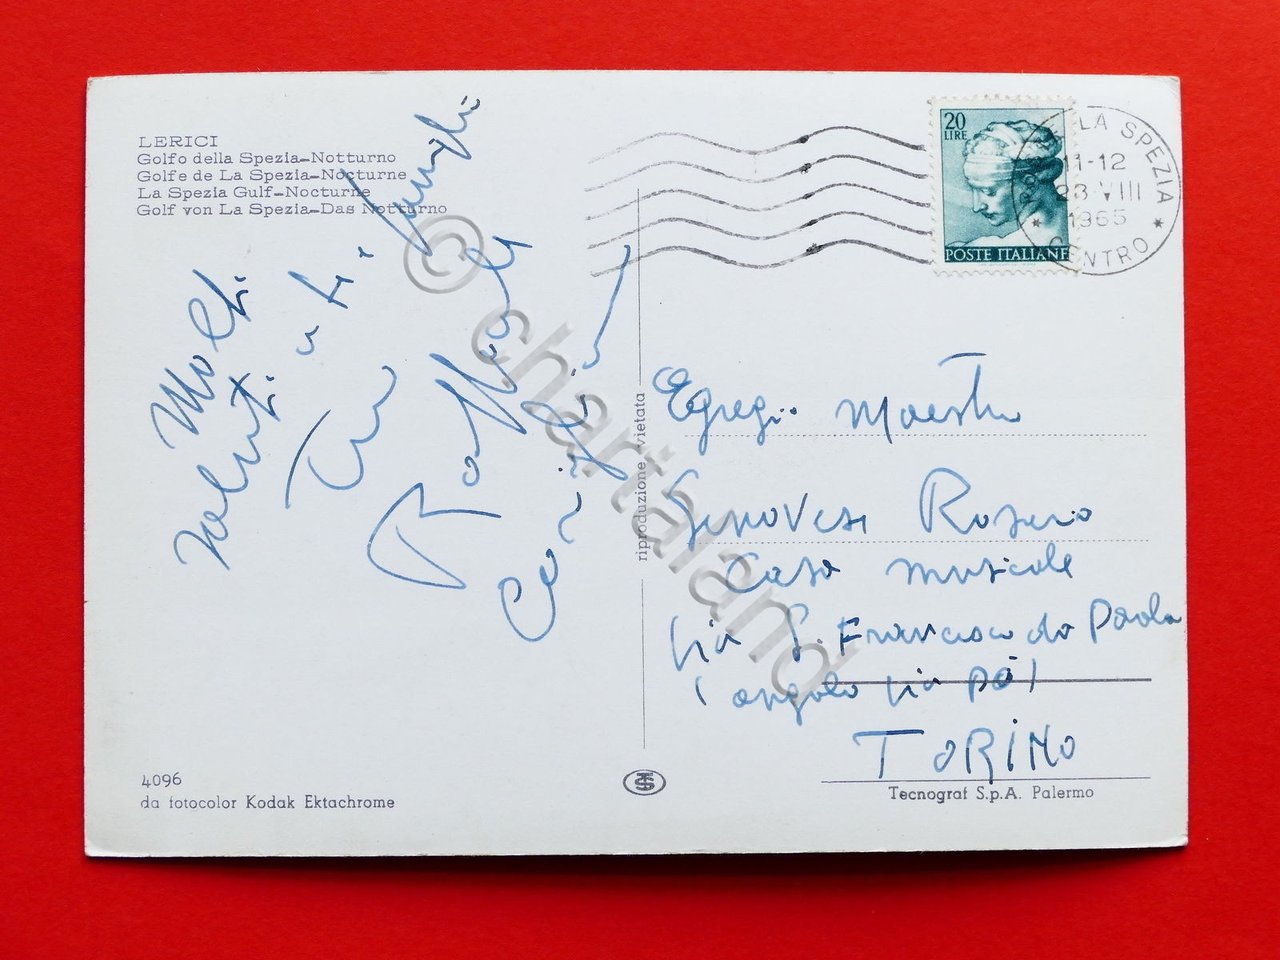 LERICI
Golfo della Spezia-Notturno
Golfe de La Spezia-Nocturne
La Spezia Gulf-Nocturne
Golf von La Spezia-Das Notturno
Molti
saluti a te i famigli
Tuo
Raffaele
20
LIRE
POSTE ITALIANE
LA SPEZIA
11-12
VIII
1965
CENTRO
riproduzione vietata
Egregio Maestro
Genovese Rosario
Casa musicale
Via S. Francesco da Paola
(angolo via Pò)
TORINO
4096
da fotocolor Kodak Ektachrome
Tecnograf S.p.A. Palermo
© chartaland